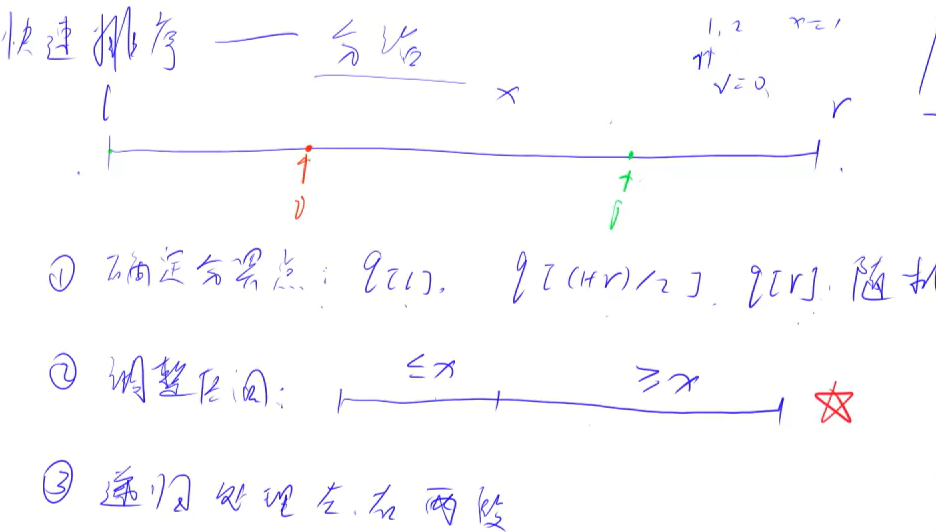 快速排序 —— 分治
1, 2 x=1
x=0,
l x r
① 确定分界点: q[l], q[(l+r)/2], q[r], 随机
② 调整区间: ≤x ≥x
③ 递归处理左、右两段